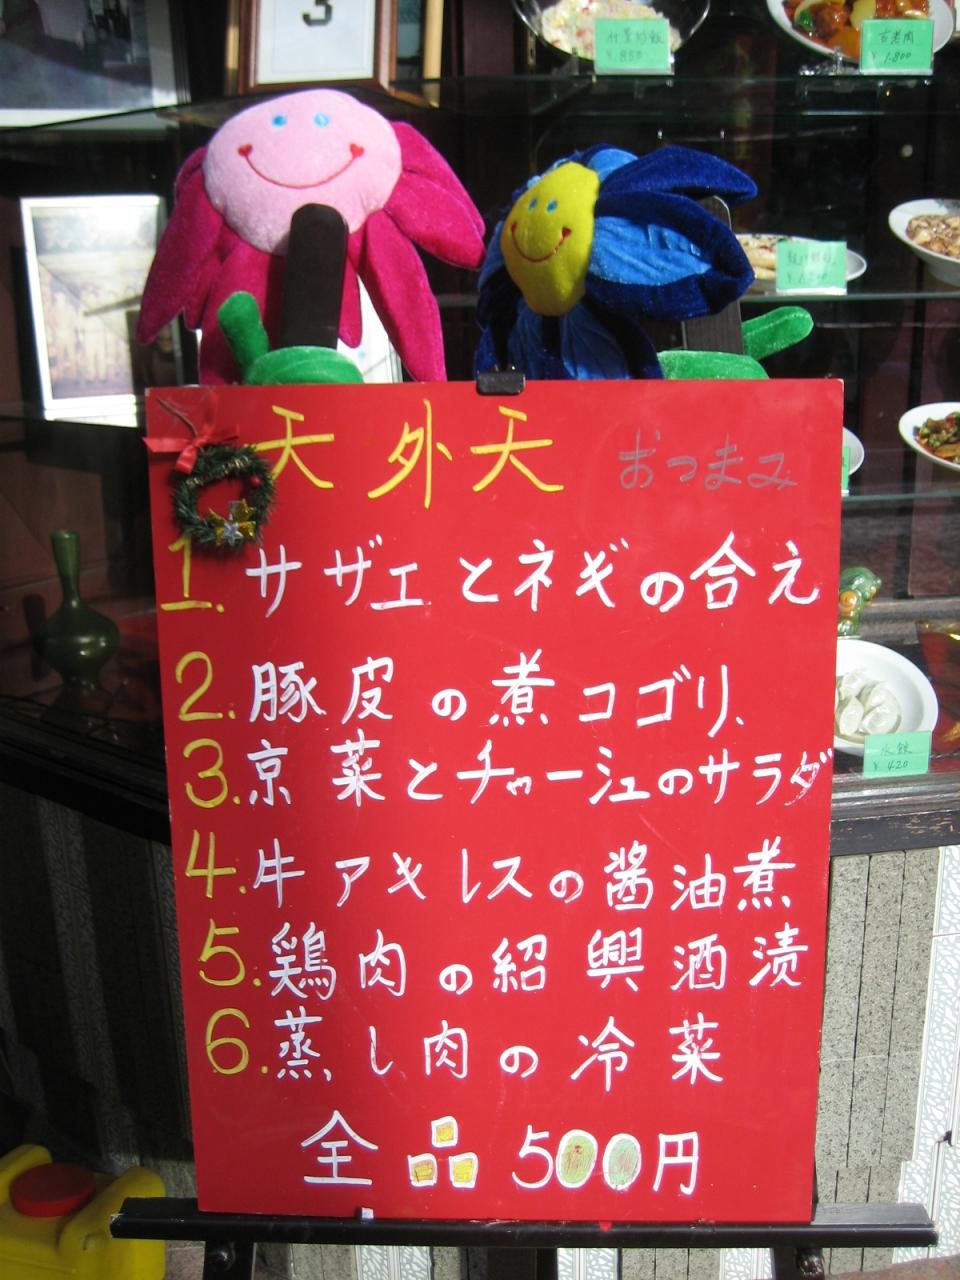 3
什景炒飯
¥850
古老肉
¥1.800
天外天 おつまみ
1. サザエとネギの合え
2. 豚皮の煮コゴリ、
3. 京菜とチャーシューのサラダ
4. 牛アキレスの醤油煮
5. 鶏肉の紹興酒漬
6. 蒸し肉の冷菜
全品500円
水餃
¥420